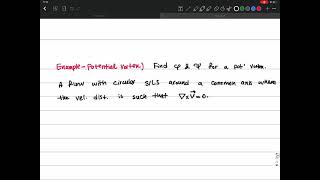 Example-Potential Vortex.) Find φ & ψ for a pot' vortex.
A flow with circular S/Ls around a common axis where
the vel. dist. is such that ∇×V⃗=0.